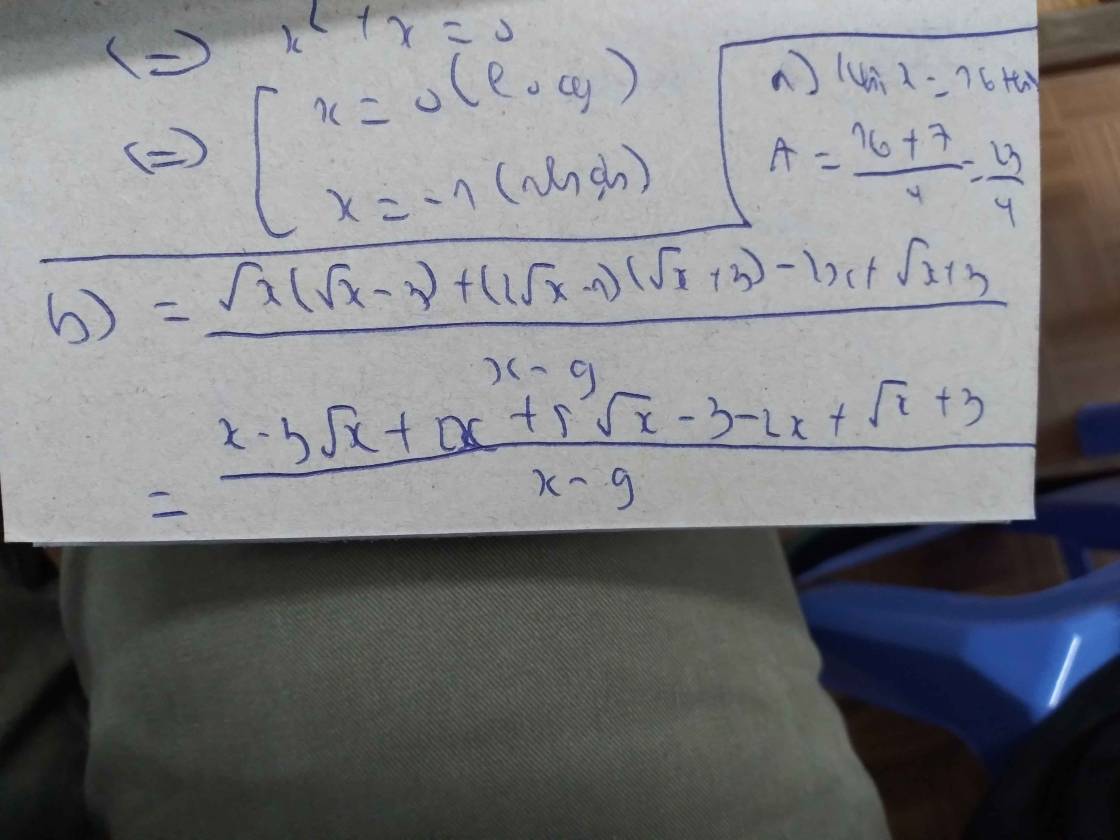 (=) x² + x = 0
(=) [ x = 0 (loại)
x = -1 (nhận)
a) x = 16
A = \frac{16+7}{4} = \frac{23}{4}
b) = \frac{√x(√x-3)+(2√x-1)(√x+3)-2x+√x+3}{x-9}
= \frac{x-3√x+2x+5√x-3-2x+√x+3}{x-9}